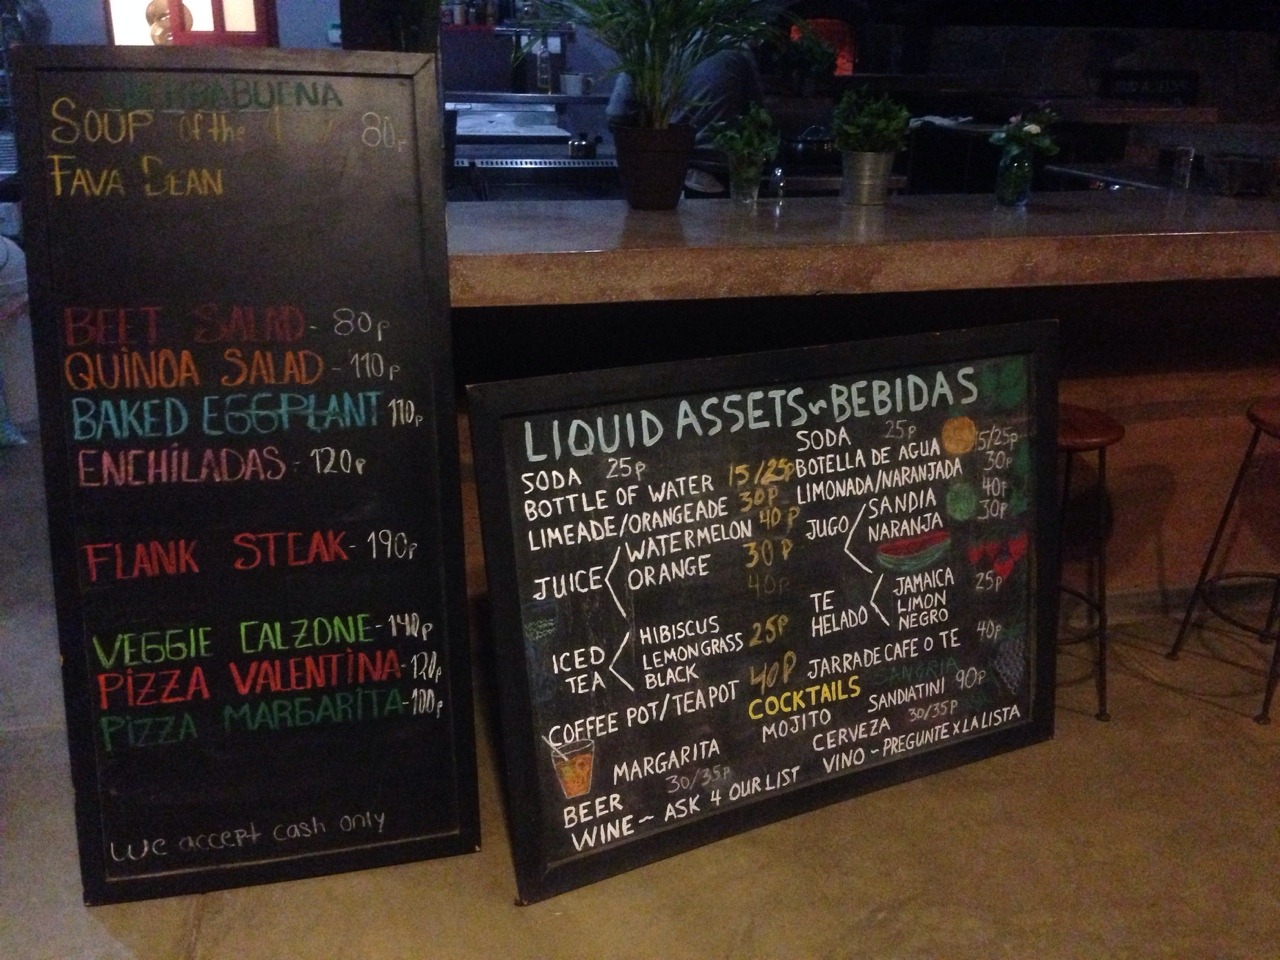 SOUP of the 80p
FAVA BEAN
BEET SALAD - 80p
QUINOA SALAD - 110p
BAKED EGGPLANT 110p
ENCHILADAS - 120p
FLANK STEAK - 190p
VEGGIE CALZONE - 140p
PIZZA VALENTINA - 120p
PIZZA MARGARITA - 100p
We accept cash only
LIQUID ASSETS~BEBIDAS
SODA 25p
BOTTLE OF WATER 15/25p
LIMEADE/ORANGEADE 30p
JUICE
WATERMELON 40p
ORANGE 30p
40p
ICED TEA
HIBISCUS
LEMONGRASS 25p
BLACK
COFFEE POT/TEA POT 40p
SODA 25p
BOTELLA DE AGUA 15/25p
LIMONADA/NARANJADA 30p
JUGO
SANDIA 40p
NARANJA 30p
TE HELADO
JAMAICA 25p
LIMON
NEGRO
JARRA DE CAFE O TE 40p
COCKTAILS
SANGRIA
MARGARITA MOJITO SANDIATINI 90p
BEER 30/35p
CERVEZA 30/35p
WINE ~ ASK 4 OUR LIST
VINO ~ PREGUNTE X LA LISTA